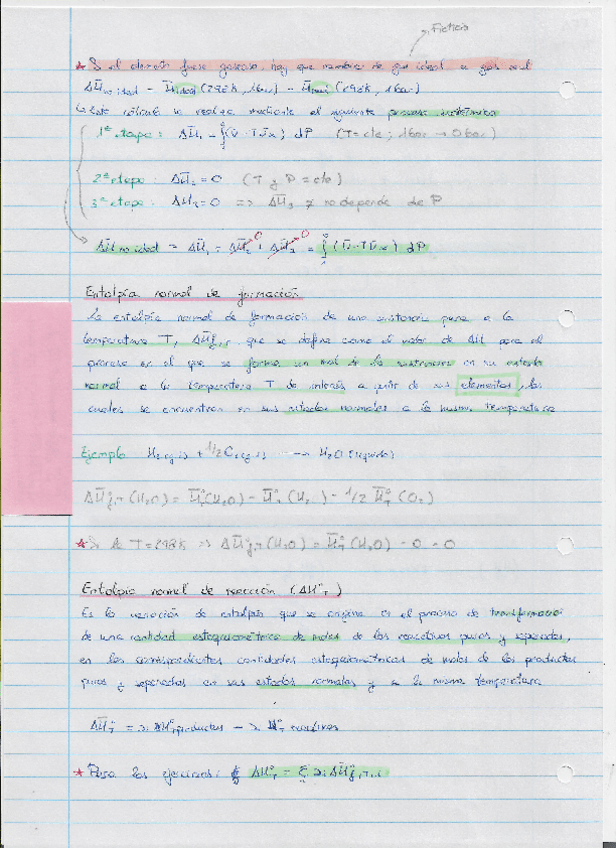 Ficticio
★ Si el elemento fuese gaseoso, hay que cambiar de gas ideal a gas real
ΔH̄ no idad = H̄ idad (298K, 1bar) - H̄ real (298K, 1bar)
↳ Este cálculo se realiza mediante el siguiente proceso isotérmico
1ª etapa: ΔH̄₁ = ∫(V̄ - TV̄α) dP (T = cte; 1bar → 0bar)
2ª etapa: ΔH̄₂ = 0 (T y P = cte)
3ª etapa: ΔH₃ = 0 => ΔH̄₃ no depende de P
ΔH̄ no idad = ΔH̄₁ + ΔH̄₂ + ΔH̄₃ = ∫(V̄ - TV̄α) dP
Entalpía normal de formación
La entalpía normal de formación de una sustancia pura a la
temperatura T, ΔH̄°f,T, que se define como el valor de ΔH para el
proceso en el que se forma un mol de la sustancia en su estado
normal a la temperatura T de interés a partir de sus elementos, los
cuales se encuentran en sus estados normales a la misma temperatura
Ejemplo H₂(g) + 1/2 O₂(g) → H₂O (líquido)
ΔH̄°f,T (H₂O) = H̄°T (H₂O) - H̄°T (H₂) - 1/2 H̄°T (O₂)
★ Si la T = 298K => ΔH̄°f,T (H₂O) = H̄°T (H₂O) - 0 - 0
Entalpía normal de reacción (ΔH°T)
Es la variación de entalpía que se origina en el proceso de transformación
de una cantidad estequiométrica de moles de los reactivos puros y separados,
en las correspondientes cantidades estequiométricas de moles de los productos
puros y separados en sus estados normales y a la misma temperatura
ΔH̄°T = productos - reactivos
★ Para los ejercicios: ΔH°T = Σ νi ΔH̄°f,T,i